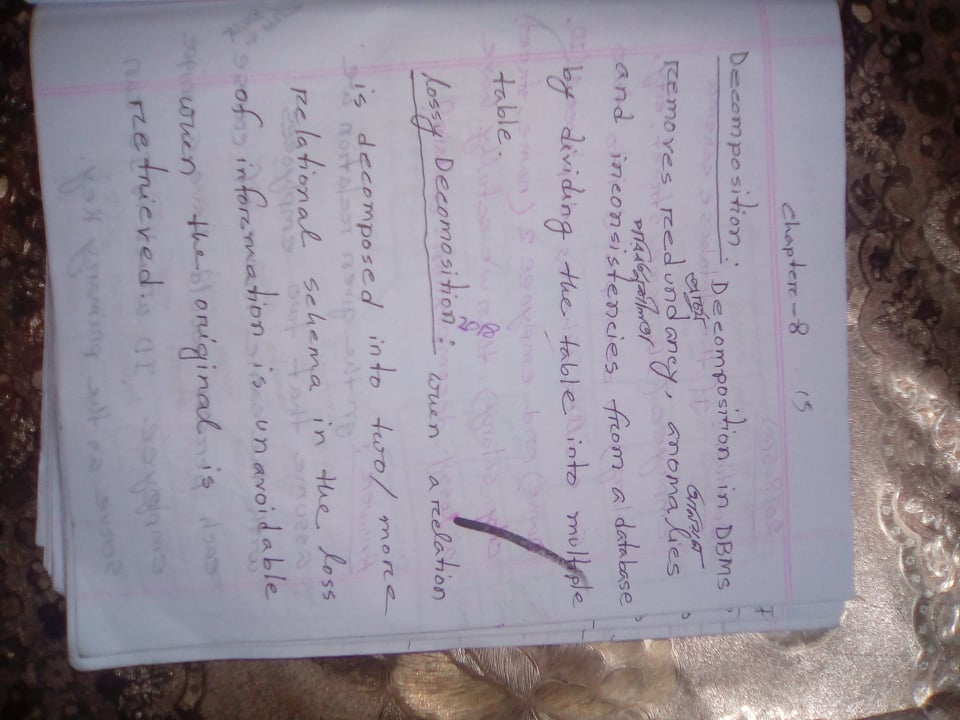 Chapter-8 15
Decomposition: Decomposition in DBMS
প্রাচুর্য
removes redundancy, anomalies
and inconsistencies from a database
by dividing the table into multiple
table.
2018
lossy Decomosition: when a relation
is decomposed into two/ more
relational schema in the loss
of information is unavoidable
when the original is
retrieved.